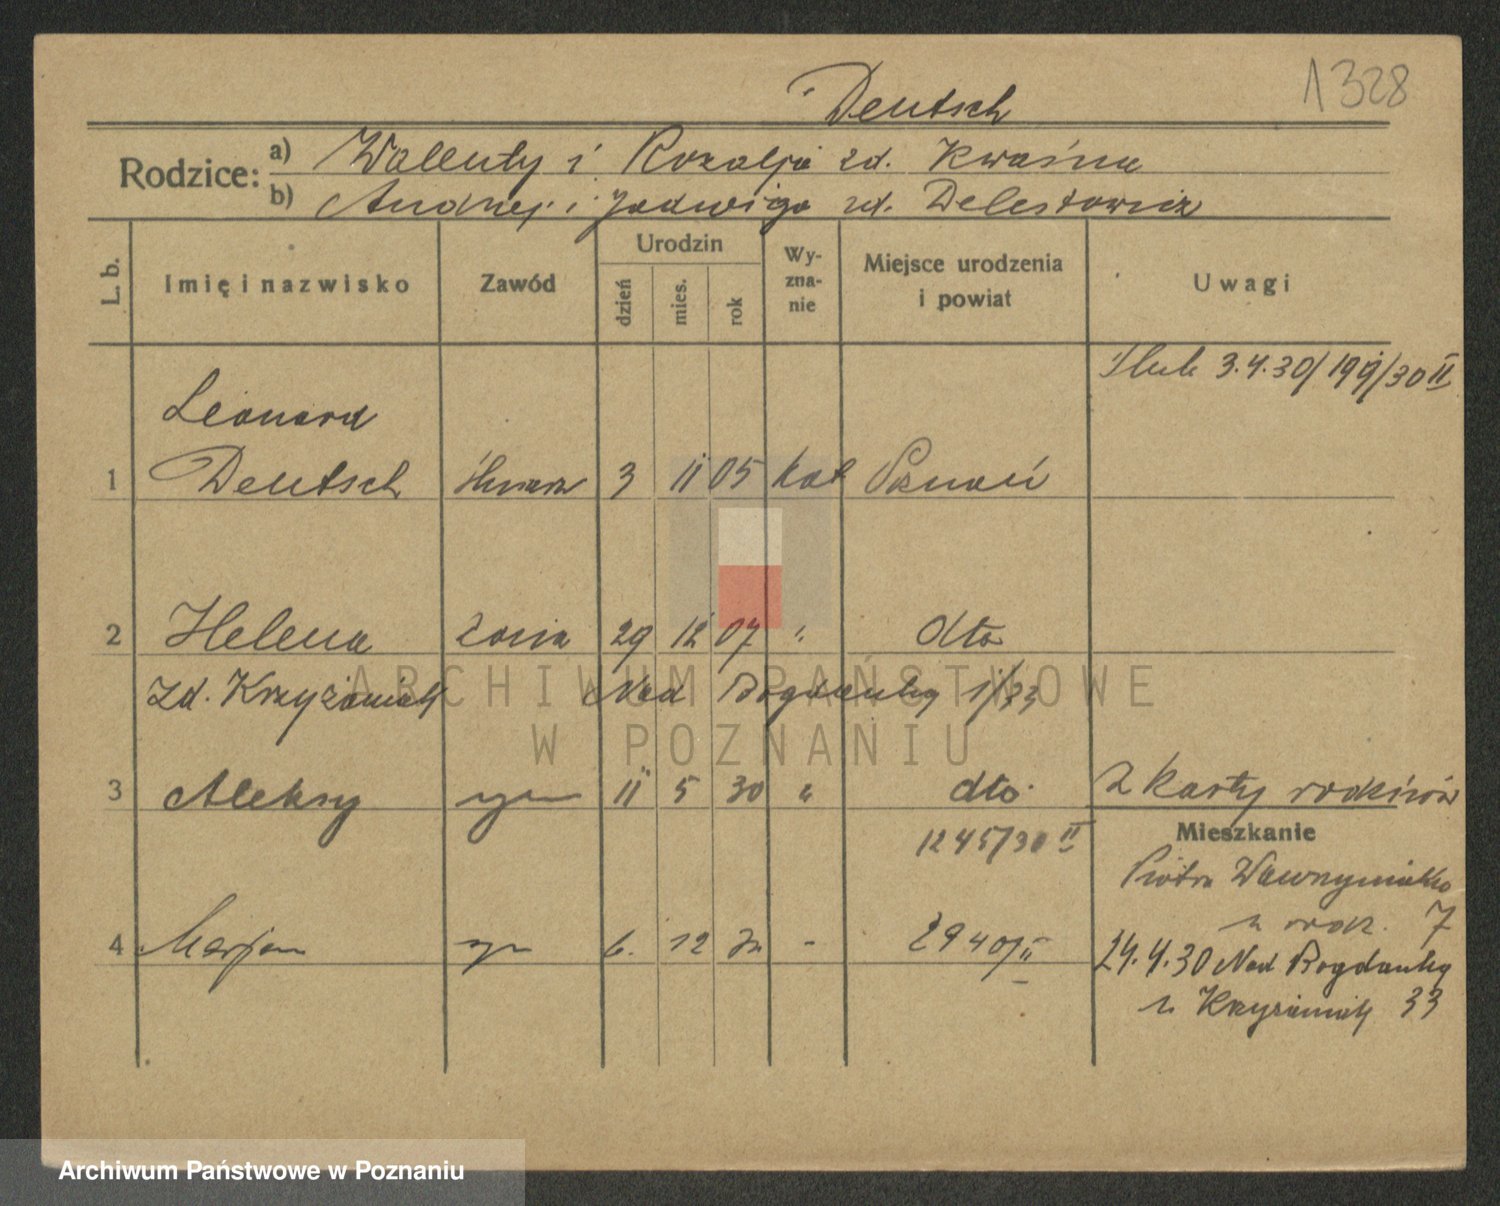 1328
Deutsch
Rodzice: a) Walenty i Rozalja zd. Kwaśna
b) Andrzej i Jadwiga zd. Delestowicz
L. b. Imię i nazwisko Zawód Urodzin dzień mies. rok Wyznanie Miejsce urodzenia i powiat Uwagi
Ślub 3.4.30/199/30 II
Leonard
1 Deutsch ślusarz 3 11 05 kat Poznań
2 Helena żona 29 12 07 " dto
zd. Krzyżaniak Nad Bogdanką 1/33
3 Aleksy syn 11 5 30 " dto. 2 karty rodziców
1245/30 II Mieszkanie
Piotra Wawrzyniaka
u rodz. 7
4 Marjan syn 6. 12 - 2940/II 24.4.30 Nad Bogdanką
u Krzyżaniak 33
ARCHIWUM PAŃSTWOWE
W POZNANIU
Archiwum Państwowe w Poznaniu